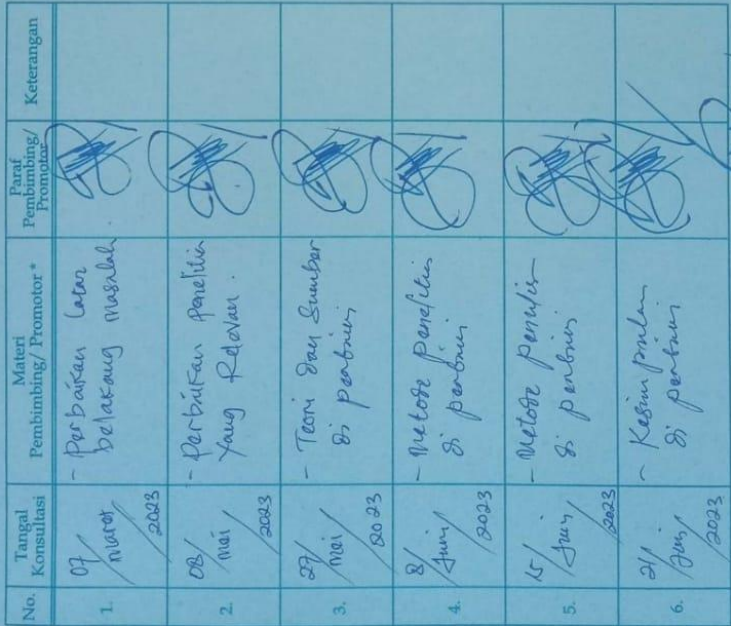 No.
Tangal
Konsultasi
Materi
Pembimbing/ Promotor *
Paraf
Pembimbing/
Promotor
Keterangan
1.
07/
maret/
2023
- Perbaikan Latar
belakang masalah
2.
08/
mei/
2023
- Perbaikan penelitian
yang Relevan.
3.
29/
mei/
2023
- Teori dan Sumber
di perbaiki
4.
8/
Juni/
2023
- Metode penelitian
di perbaiki
5.
15/
Juni/
2023
- Metode penulisan
di perbaiki
6.
21/
Juni/
2023
- Kesimpulan
di perbaiki